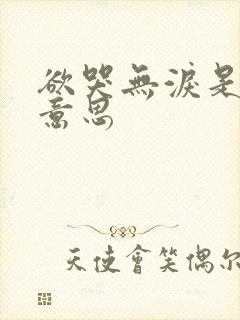 欲哭無淚是
意思
天使會笑偶尔